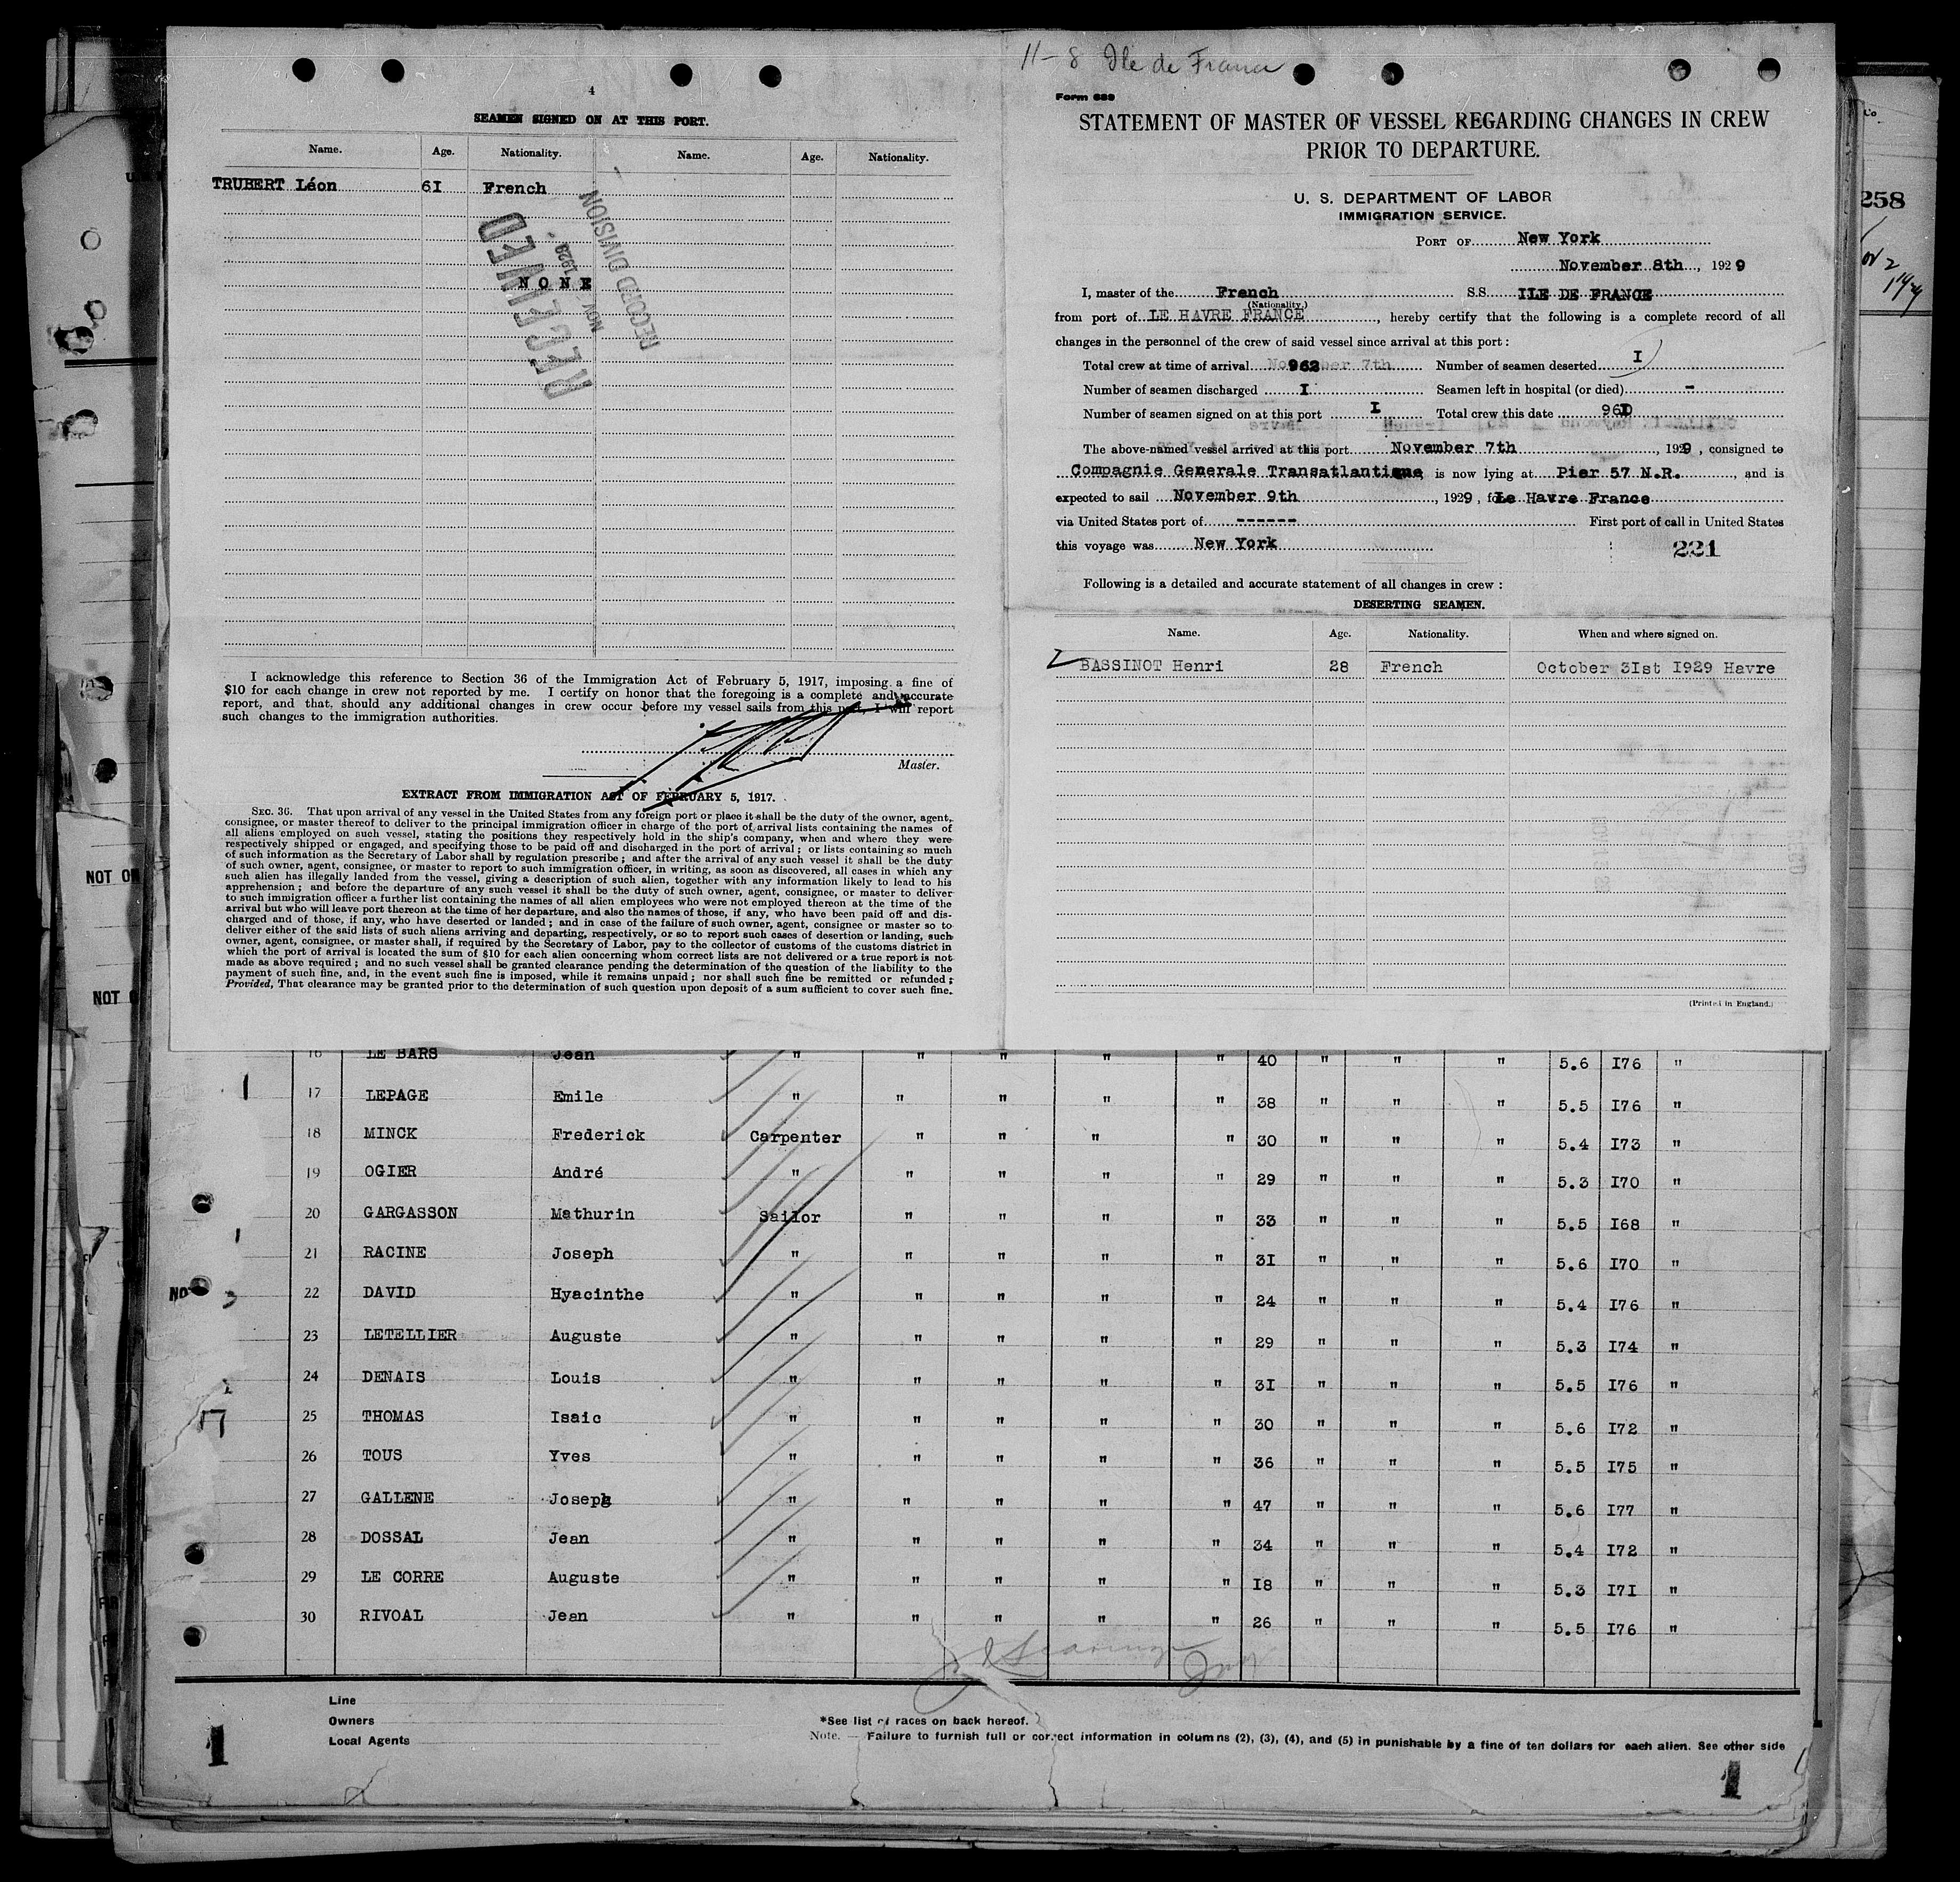 4
SEAMEN SIGNED ON AT THIS PORT.
Name. Age. Nationality. Name. Age. Nationality.
TRUBERT Léon 6I French
NONE
RECEIVED
NOV 1929
RECORD DIVISION
I acknowledge this reference to Section 36 of the Immigration Act of February 5, 1917, imposing a fine of
$10 for each change in crew not reported by me. I certify on honor that the foregoing is a complete and accurate
report, and that, should any additional changes in crew occur before my vessel sails from this port, I will report
such changes to the immigration authorities.
Master.
EXTRACT FROM IMMIGRATION ACT OF FEBRUARY 5, 1917.
SEC. 36. That upon arrival of any vessel in the United States from any foreign port or place it shall be the duty of the owner, agent,
consignee, or master thereof to deliver to the principal immigration officer in charge of the port of arrival lists containing the names of
all aliens employed on such vessel, stating the positions they respectively hold in the ship's company, when and where they were
respectively shipped or engaged, and specifying those to be paid off and discharged in the port of arrival; or lists containing so much
of such information as the Secretary of Labor shall by regulation prescribe; and after the arrival of any such vessel it shall be the duty
of such owner, agent, consignee, or master to report to such immigration officer, in writing, as soon as discovered, all cases in which any
such alien has illegally landed from the vessel, giving a description of such alien, together with any information likely to lead to his
apprehension; and before the departure of any such vessel it shall be the duty of such owner, agent, consignee, or master to deliver
to such immigration officer a further list containing the names of all alien employees who were not employed thereon at the time of the
arrival but who will leave port thereon at the time of her departure, and also the names of those, if any, who have been paid off and dis-
charged and of those, if any, who have deserted or landed; and in case of the failure of such owner, agent, consignee or master so to
deliver either of the said lists of such aliens arriving and departing, respectively, or so to report such cases of desertion or landing, such
owner, agent, consignee, or master shall, if required by the Secretary of Labor, pay to the collector of customs of the customs district in
which the port of arrival is located the sum of $10 for each alien concerning whom correct lists are not delivered or a true report is not
made as above required; and no such vessel shall be granted clearance pending the determination of the question of the liability to the
payment of such fine, and, in the event such fine is imposed, while it remains unpaid; nor shall such fine be remitted or refunded;
Provided, That clearance may be granted prior to the determination of such question upon deposit of a sum sufficient to cover such fine.
11-8 Ile de France
Form 689
STATEMENT OF MASTER OF VESSEL REGARDING CHANGES IN CREW
PRIOR TO DEPARTURE.
U. S. DEPARTMENT OF LABOR
IMMIGRATION SERVICE.
PORT OF New York
November 8th, 1929
I, master of the French S.S. ILE DE FRANCE
(Nationality.)
from port of LE HAVRE FRANCE, hereby certify that the following is a complete record of all
changes in the personnel of the crew of said vessel since arrival at this port:
Total crew at time of arrival November 7th 962 Number of seamen deserted I
Number of seamen discharged I Seamen left in hospital (or died) -
Number of seamen signed on at this port I Total crew this date 96I
The above-named vessel arrived at this port November 7th, 1929, consigned to
Compagnie Generale Transatlantique is now lying at Pier 57 N.R., and is
expected to sail November 9th, 1929, for Le Havre France
via United States port of ------ First port of call in United States
this voyage was New York
221
Following is a detailed and accurate statement of all changes in crew:
DESERTING SEAMEN.
Name. Age. Nationality. When and where signed on.
BASSINOT Henri 28 French October 3Ist I929 Havre
(Printed in England.)
258
NOT ON
NOT O
NO
16 LE BARS Jean " " " " " 40 " " " 5.6 I76 "
17 LEPAGE Emile " " " " " 38 " " " 5.5 I76 "
18 MINCK Frederick Carpenter " " " " 30 " " " 5.4 I73 "
19 OGIER André " " " " " 29 " " " 5.3 I70 "
20 GARGASSON Mathurin Sailor " " " " 33 " " " 5.5 I68 "
21 RACINE Joseph " " " " " 3I " " " 5.6 I70 "
22 DAVID Hyacinthe " " " " " 24 " " " 5.4 I76 "
23 LETELLIER Auguste " " " " " 29 " " " 5.3 I74 "
24 DENAIS Louis " " " " " 3I " " " 5.5 I76 "
25 THOMAS Isaic " " " " " 30 " " " 5.6 I72 "
26 TOUS Yves " " " " " 36 " " " 5.5 I75 "
27 GALLENE Joseph " " " " " 47 " " " 5.6 I77 "
28 DOSSAL Jean " " " " " 34 " " " 5.4 I72 "
29 LE CORRE Auguste " " " " " I8 " " " 5.3 I7I "
30 RIVOAL Jean " " " " " 26 " " " 5.5 I76 "
Line
Owners
Local Agents
*See list of races on back hereof.
Note. — Failure to furnish full or correct information in columns (2), (3), (4), and (5) in punishable by a fine of ten dollars for each alien. See other side
1
1